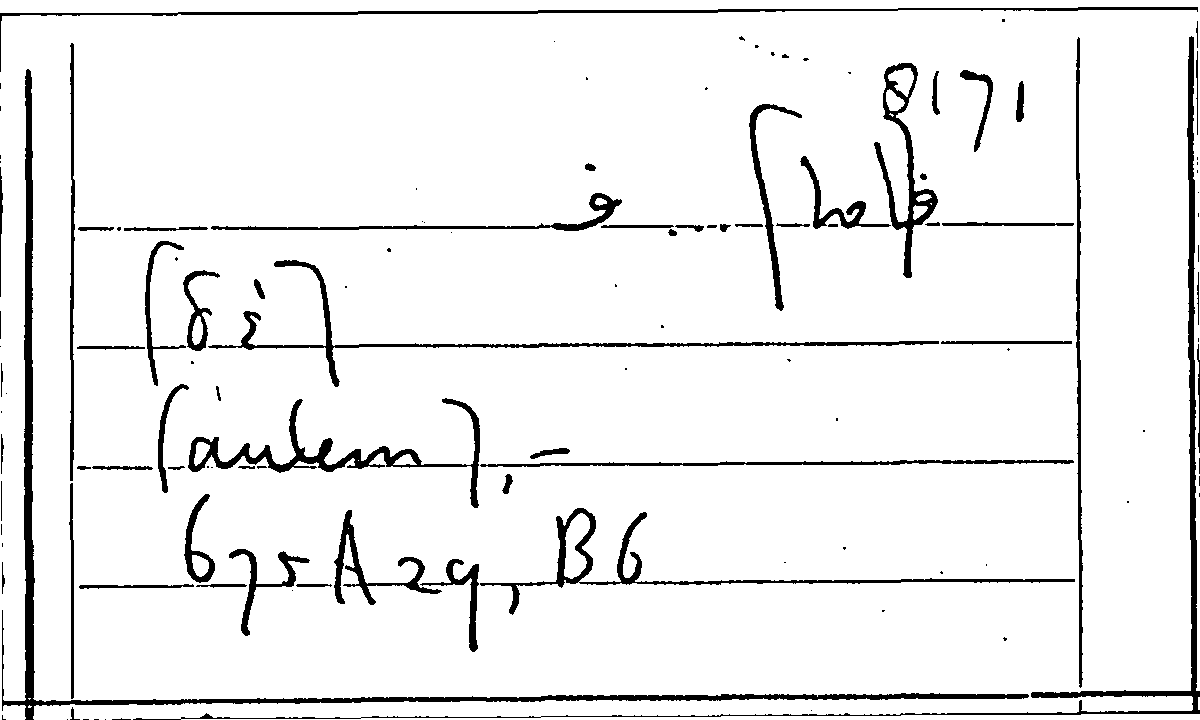 8171
فـ ...
[δέ]
[autem], –
675 A 29, B 6